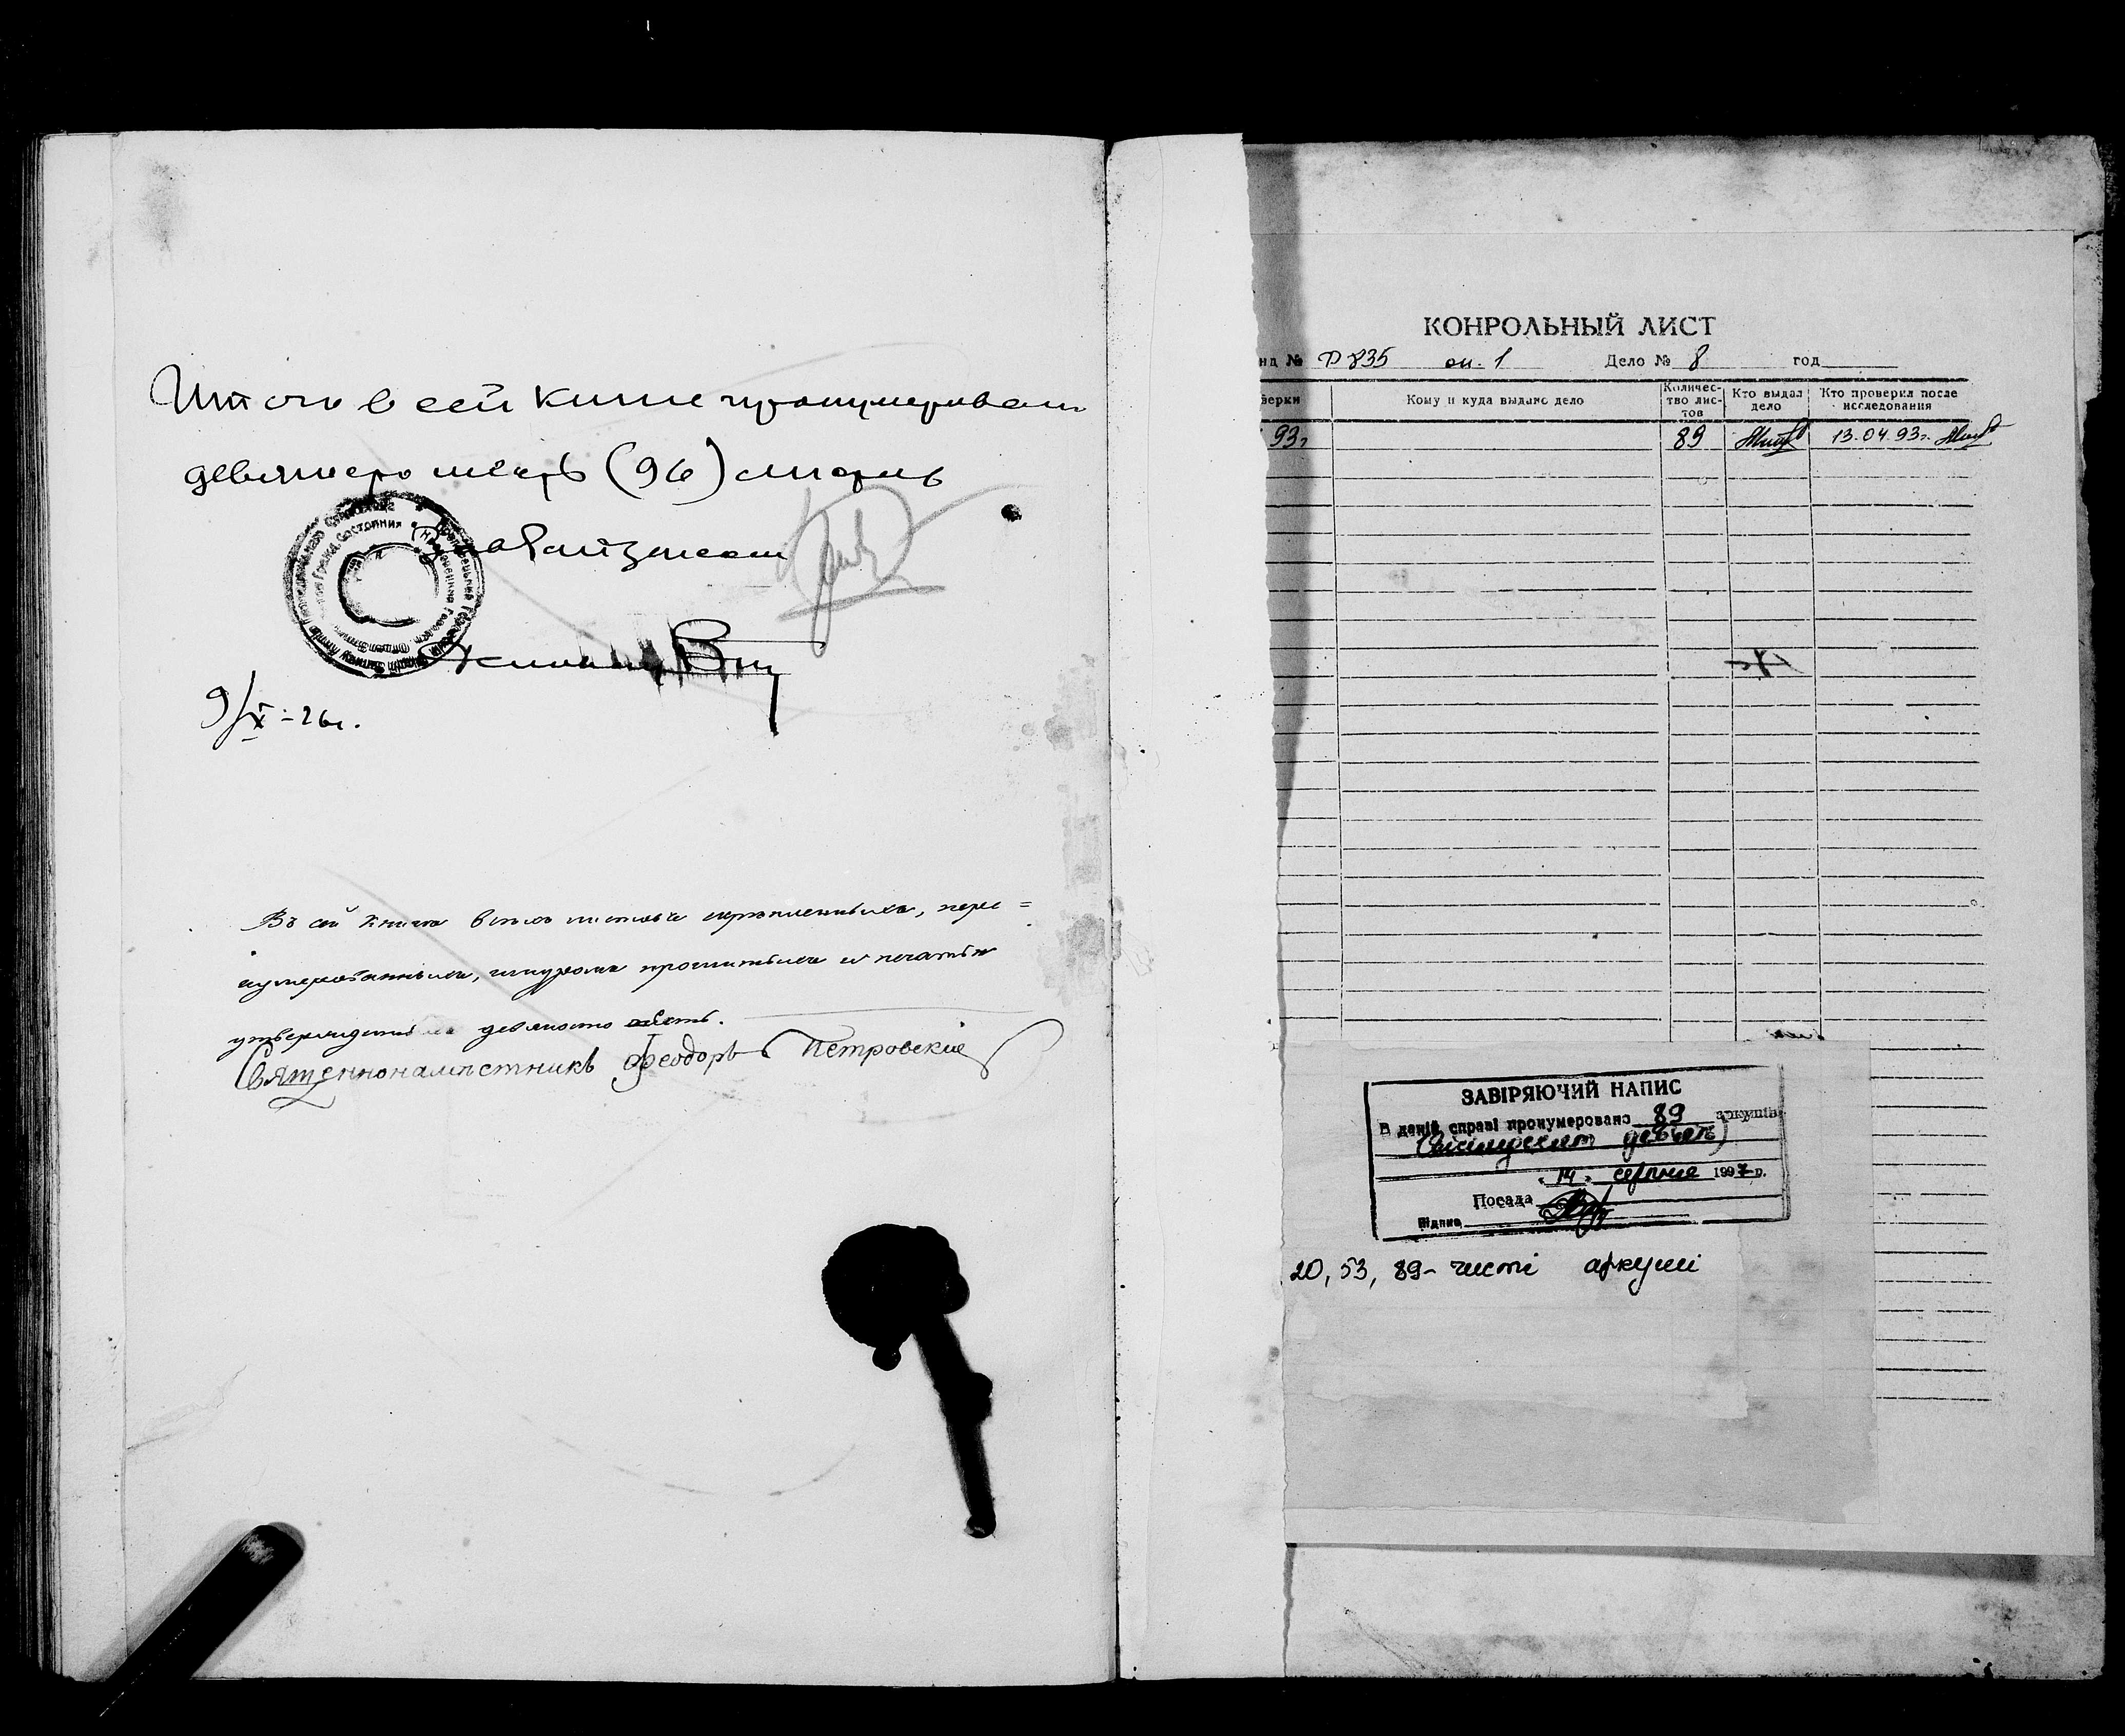 Итого в сей книге пронумеровано
девяносто шесть (96) листов
9/X-26г.
Въ сей книгѣ всѣхъ листовъ скрѣпленныхъ, пере=
нумерованныхъ, шнуромъ прошитыхъ и печатью
утвержденныхъ девяносто шесть.
Священнонамѣстникъ Феодоръ Петровскій
КОНРОЛЬНЫЙ ЛИСТ
нд № Р 835 оп. 1 Дело № 8 год
верки Кому и куда выдано дело Количес-тво лис-тов Кто выдал дело Кто проверил после исследования
93г 89 13.04.93г.
ЗАВІРЯЮЧИЙ НАПИС
В даній справі пронумеровано 89 аркушів
(вісімдесят дев'ять)
"14" серпня 1997 р.
Посада
Підпис
20, 53, 89- чисті аркуші